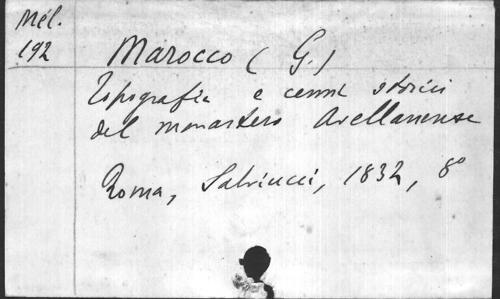 Mél.
192
Marocco (G.)
Topografia e cenni storici
del monastero Avellanense
Roma, Salviucci, 1832, 8°